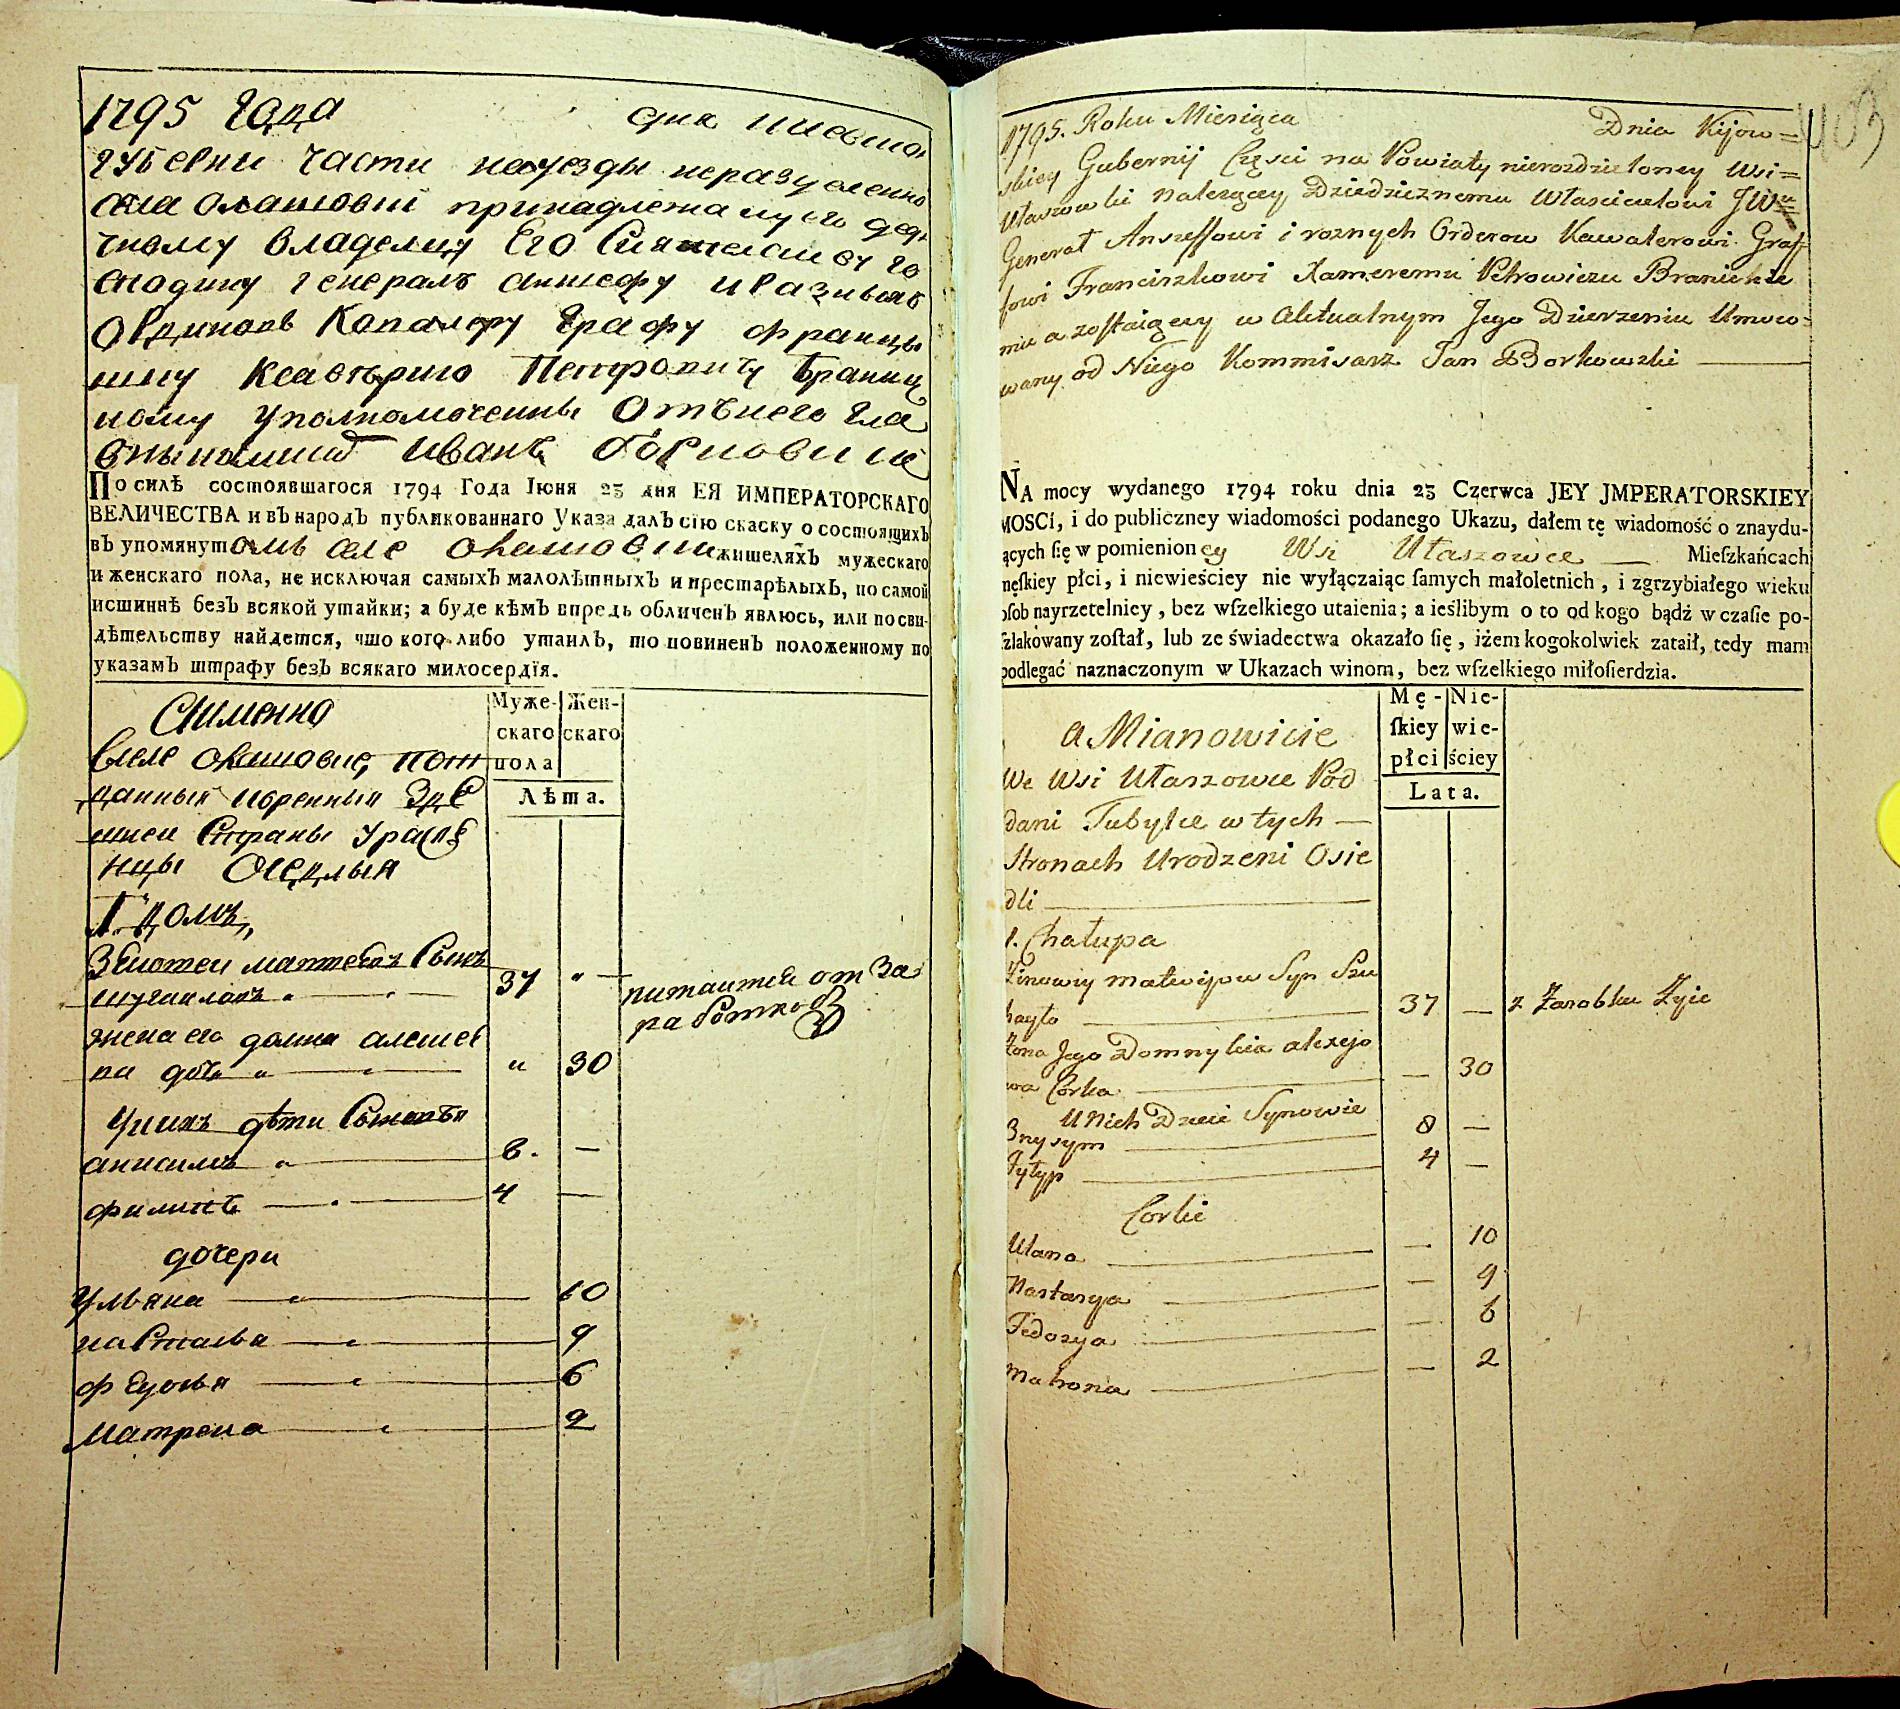 1795 Года дня Киевско
губернии части на уезды неразделенно
села Олашовки принадлежащего дед
чному владелцу Его Сиятелству го
сподину генералъ аншефу и разныхъ
Ординовъ Кавалеру Графу Франци
шку Ксаверию Петровичу Браниц
кому уполномоченны Отънего
Иванъ Борковски
По силѣ состоявшагося 1794 Года Іюня 23 дня ЕЯ ИМПЕРАТОРСКАГО
ВЕЛИЧЕСТВА и въ народъ публикованнаго Указа далъ сію скаску о состоящихъ
въ упомянутомъ селе жителяхъ мужескаго
и женскаго пола, не исключая самыхъ малолѣтныхъ и престарѣлыхъ, по самой
истиннѣ безъ всякой утайки; а буде кѣмъ впредь обличенъ явлюсь, или по сви-
дѣтельству найдется, что кого либо утаилъ, то повиненъ положенному по
указамъ штрафу безъ всякаго милосердія.
Аимянно
Муже-
скаго
пола
Жен-
скаго
Лѣта.
Вселе пот
данныя коренныя Зде
шнеи Страны Урожѣ
нцы Оседлыя
1. домъ,
матвеевъ Сынъ
37 " питаится от за
работков
жена его домна алексее
ва дочь " 30
Уних дѣти Сыновья
анисимъ 8. —
филипъ 4 —
дочери
Ульяна 10
настасья 9
федосья 6
Матрена 2
403
1795. Roku Miesiąca Dnia Kijow=
skiey Gubernij Części na Powiaty nierozdzieloney Wsi=
Utaszowki należącey Dziedzicznemu Właścicielowi JW
General Anszeffowi i roznych Orderow Kawalerowi Graf=
fowi Franciszkowi Xaweremu Petrowiczu Branickie
mu a zostaiącey w Aktualnym Jego Dzierzeniu Umoco=
wany od Niego Kommisarz Jan Borkowski
NA mocy wydanego 1794 roku dnia 23 Czerwca JEY JMPERATORSKIEY
MOSCI, i do publiczney wiadomości podanego Ukazu, dałem tę wiadomość o znaydu-
ących ſię w pomienioney Wsi Utaszowce Mieſzkańcach
męſkiey płci, i niewieściey nie wyłączaiąc ſamych małoletnich, i zgrzybiałego wieku
oſob nayrzetelniey, bez wſzelkiego utaienia; a ieślibym o to od kogo bądź w czaſie po-
ſzlakowany zoſtał, lub ze świadectwa okazało ſię, iżem kogokolwiek zataił, tedy mam
podlegać naznaczonym w Ukazach winom, bez wſzelkiego miłoſierdzia.
a Mianowicie
Mę-
ſkiey
płci
Nie-
wie-
ściey
Lata.
We Wsi Utaszowce Pod
dani Tubylce w tych
Stronach Urodzeni Osie
dli
1. Chałupa
Zinowiy Matwijow Syn Szu
hayło 37 — z Zarobku Żyie
Żona Jego Domnykia alexejo
wa Corka — 30
U Nich Dzieci Synowie
Onysym 8 —
Fytyp 4 —
Corki
Ulana — 10
Nastasya — 9
Fedosya — 6
Matrona — 2